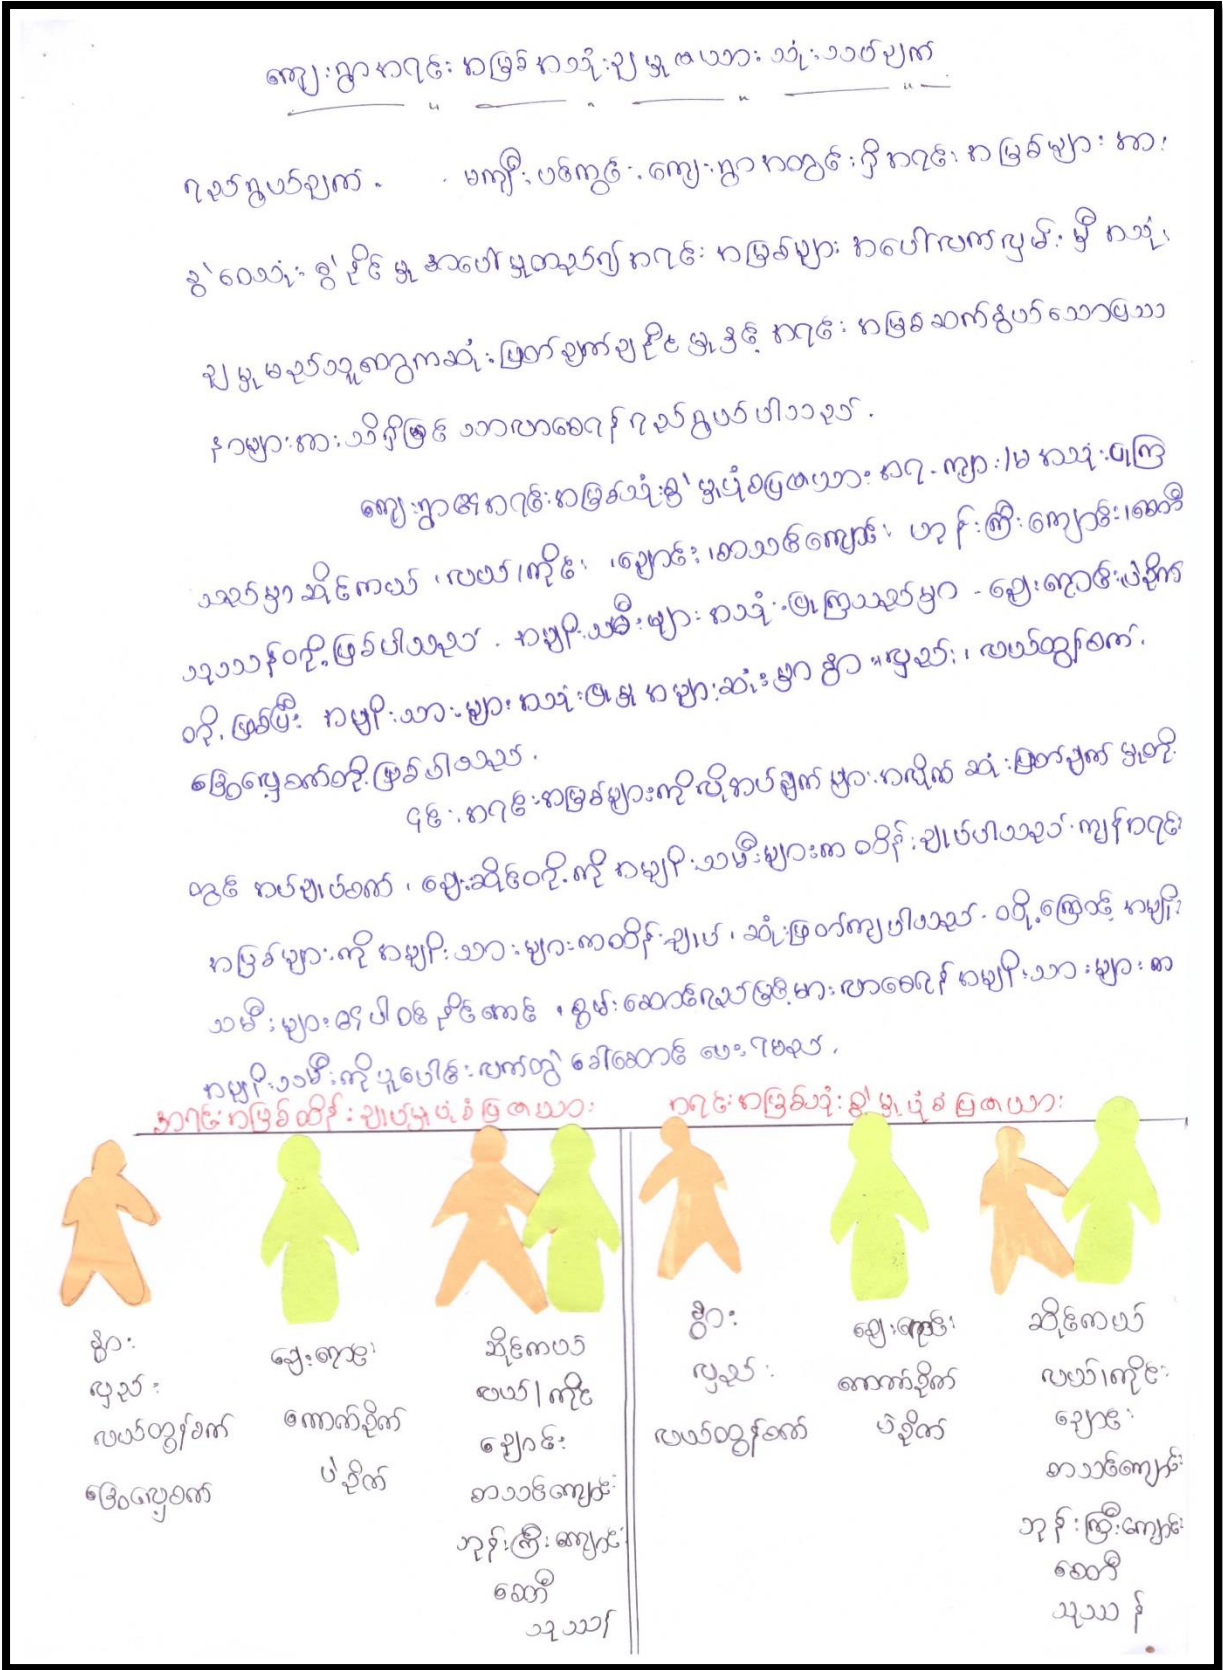 ကျေးရွာအရင်းအမြစ်အသုံးချမှုဇယား သုံးသပ်ချက်
ရည်ရွယ်ချက်။ မကျီးပင်ကွင်းကျေးရွာအတွင်းရှိအရင်းအမြစ်များအား
ခွဲဝေသုံးစွဲနိုင်မှုအပေါ်မူတည်၍အရင်းအမြစ်များအပေါ်လက်လှမ်းမှီအသုံး
ချမှုမည်သူတွေကဆုံးဖြတ်ချက်ချနိုင်မှုနှင့်အရင်းအမြစ်ဆက်နွယ်သောပြဿ
နာများအားသိရှိမြင်သာလာစေရန်ရည်ရွယ်ပါသည်။
ကျေးရွာ၏အရင်းအမြစ်သုံးစွဲမှုပုံစံပြဇယားအရ ကျား/မ အသုံးပြုကြ
သည်မှာဆိုင်ကယ်၊လယ်/ကိုင်း၊ချောင်း၊စာသင်ကျောင်းဘုန်းကြီးကျောင်း၊စေတီ
သုသာန်တို့ဖြစ်ပါသည်။အမျိုးသမီးများအသုံးပြုကြသည်မှာ-ဈေးရောင်းပဲစိုက်
တို့ဖြစ်ပြီး အမျိုးသားများအသုံးပြုမှုအများဆုံးမှာနွား၊လှည်း၊လယ်ထွန်စက်၊
ခြွေလှေ့စက်တို့ဖြစ်ပါသည်။
၄င်းအရင်းအမြစ်များကိုလိုအပ်ချက်များအလိုက်ဆုံးဖြတ်ချက်မှုတို့
တွင်အပ်ချုပ်စက်၊ဈေးဆိုင်တို့ကိုအမျိုးသမီးများကထိန်းချုပ်ပါသည်။ကျန်အရင်း
အမြစ်များကိုအမျိုးသားများကထိန်းချုပ်၊ဆုံးဖြတ်ကြပါသည်။ထို့ကြောင့်အမျိုး
သမီးများ၏ပါဝင်နိုင်အောင်၊စွမ်းဆောင်ရည်မြင့်မားလာစေရန်အမျိုးသားများက
အမျိုးသမီးကိုပူးပေါင်းလက်တွဲခေါ်ဆောင်ပေးရမည်။
အရင်းအမြစ်ထိန်းချုပ်မှုပုံစံပြဇယား အရင်းအမြစ်သုံးစွဲမှုပုံစံပြဇယား
နွား
လှည်း
လယ်ထွန်စက်
ခြွေလှေ့စက်
ဈေးရောင်း
ကောက်စိုက်
ပဲစိုက်
ဆိုင်ကယ်
လယ်/ကိုင်း
ချောင်း
စာသင်ကျောင်း
ဘုန်းကြီးကျောင်း
စေတီ
သုသာန်
နွား
လှည်း
လယ်ထွန်စက်
ဈေးရောင်း
ကောက်စိုက်
ပဲစိုက်
ဆိုင်ကယ်
လယ်/ကိုင်း
ချောင်း
စာသင်ကျောင်း
ဘုန်းကြီးကျောင်း
စေတီ
သုသာန်